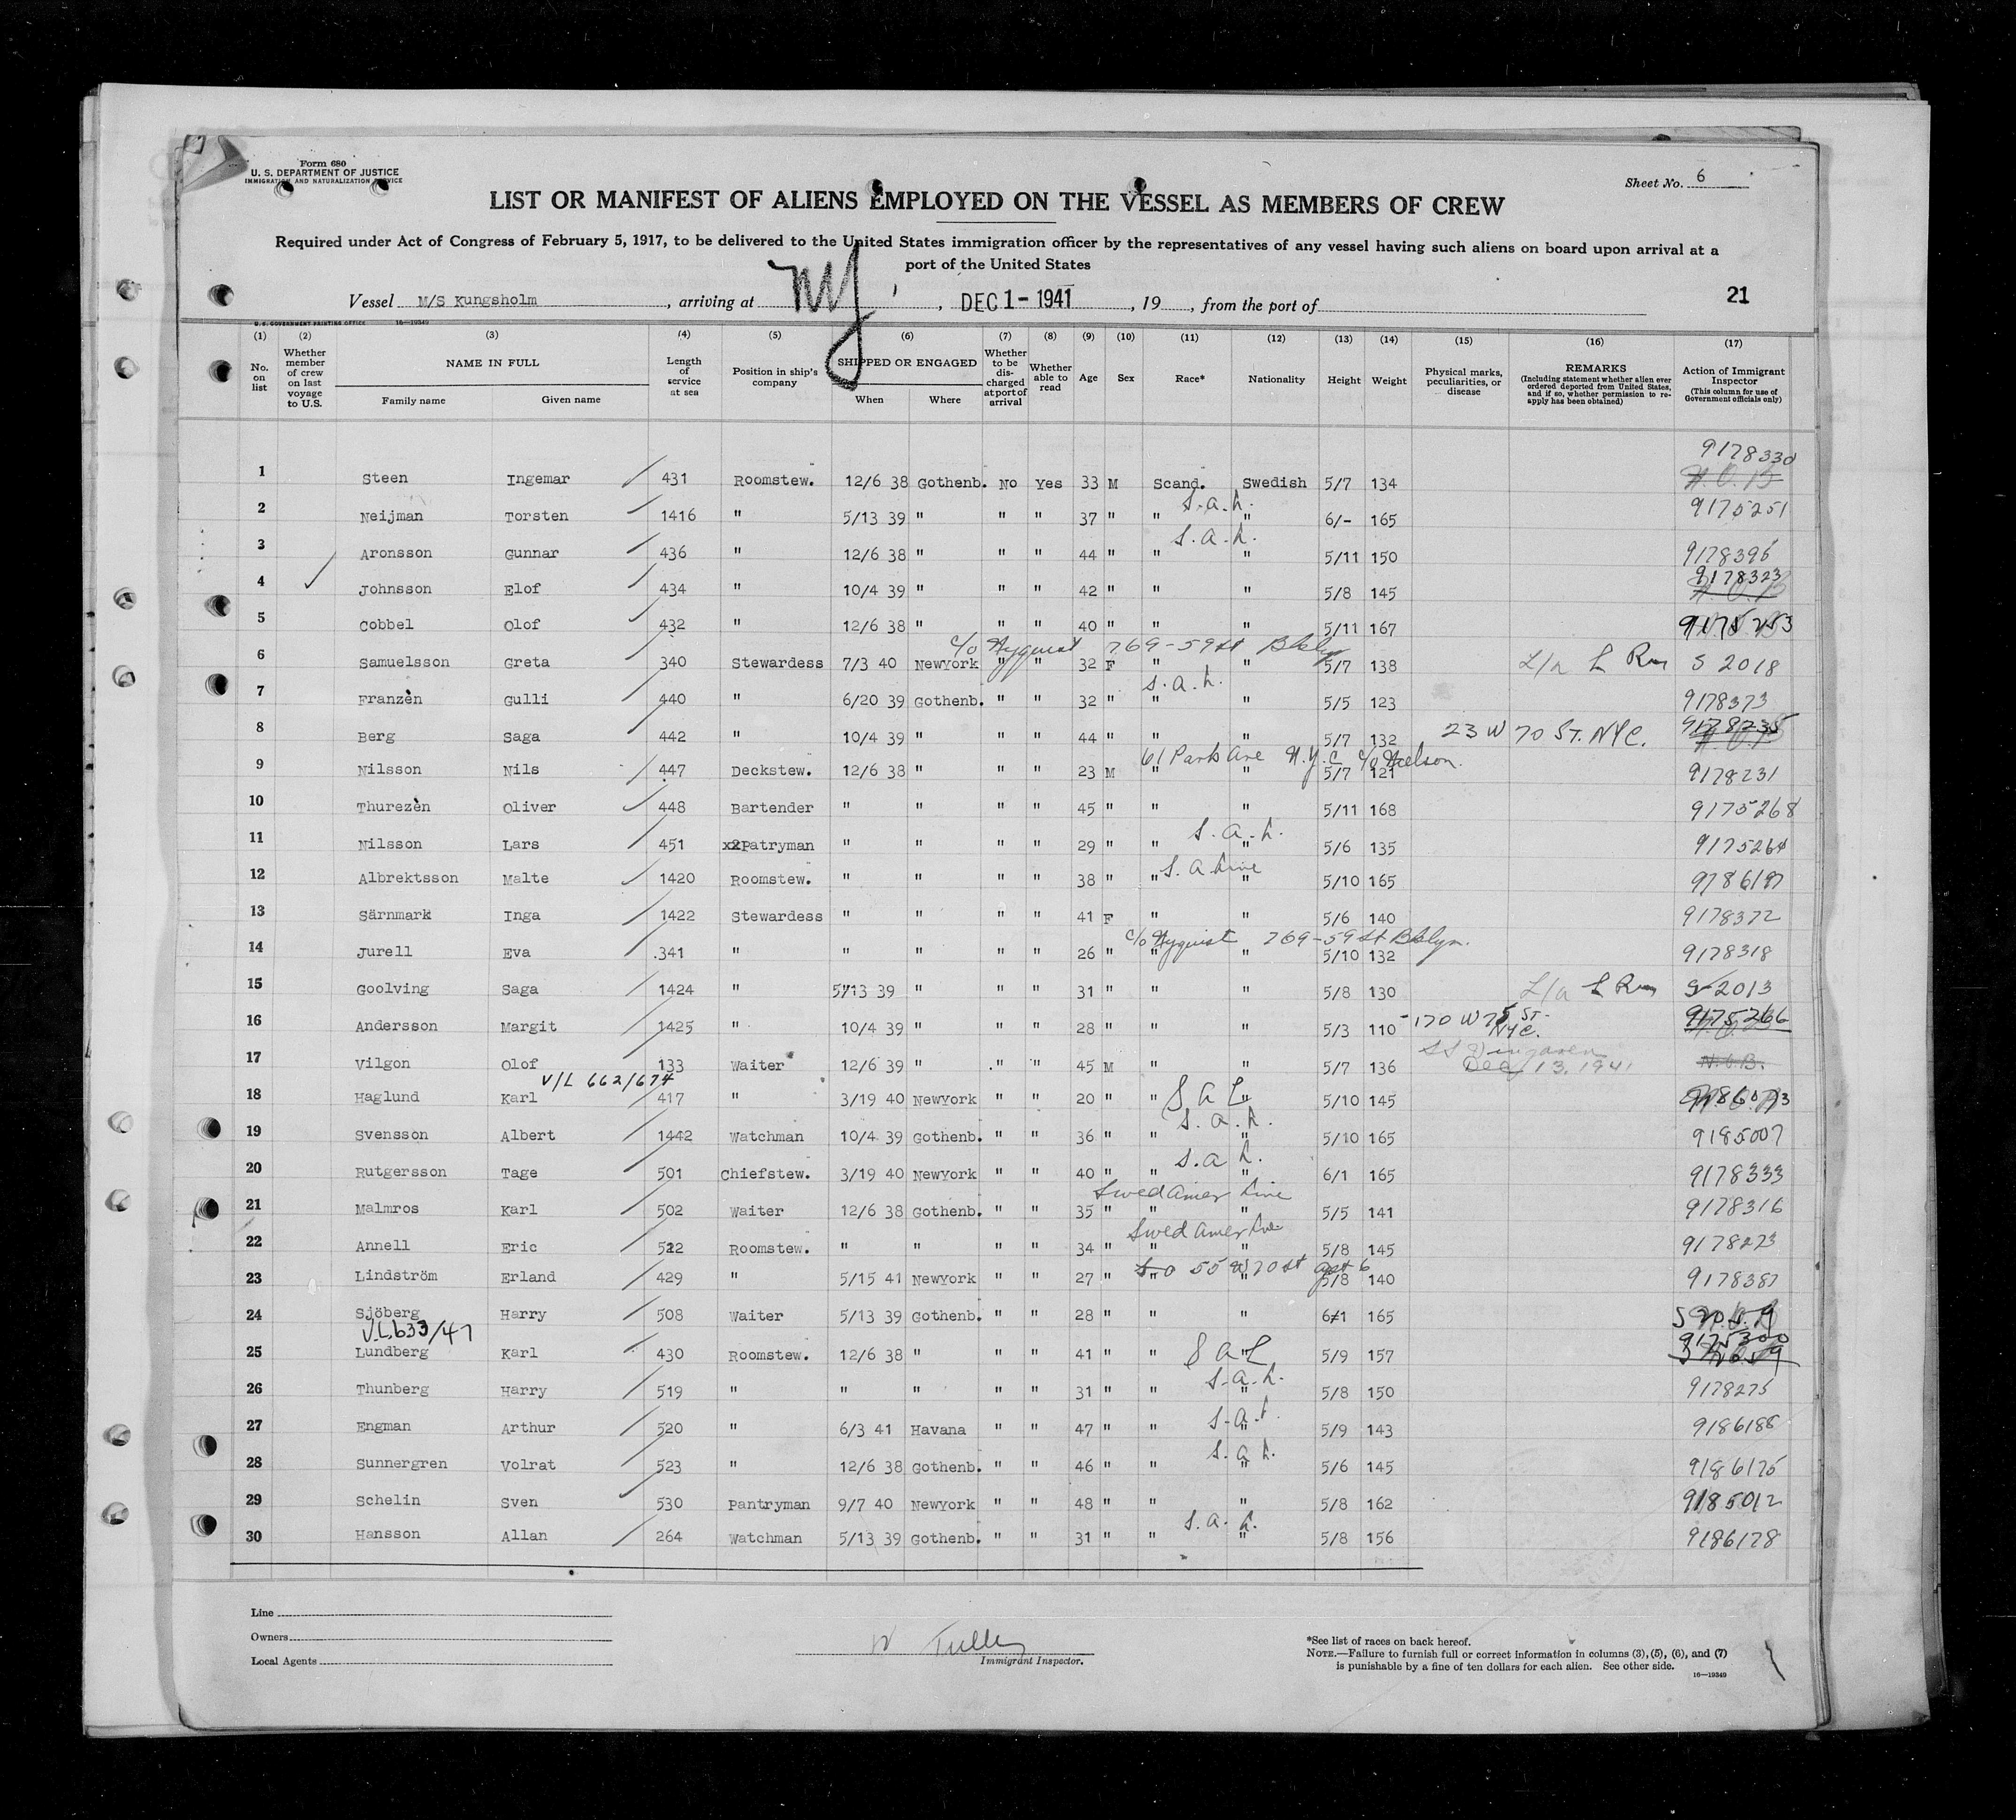 Form 680
U. S. DEPARTMENT OF JUSTICE
IMMIGRATION AND NATURALIZATION SERVICE
Sheet No. 6
LIST OR MANIFEST OF ALIENS EMPLOYED ON THE VESSEL AS MEMBERS OF CREW
Required under Act of Congress of February 5, 1917, to be delivered to the United States immigration officer by the representatives of any vessel having such aliens on board upon arrival at a
port of the United States
Vessel M/S Kungsholm , arriving at NY , DEC 1 - 1941 , 19 , from the port of 21
U. S. GOVERNMENT PRINTING OFFICE 16—19349
(1) (2) (3) (4) (5) (6) (7) (8) (9) (10) (11) (12) (13) (14) (15) (16) (17)
No. on list
Whether member of crew on last voyage to U.S.
NAME IN FULL
Family name Given name
Length of service at sea
Position in ship's company
SHIPPED OR ENGAGED
When Where
Whether to be discharged at port of arrival
Whether able to read
Age
Sex
Race*
Nationality
Height
Weight
Physical marks, peculiarities, or disease
REMARKS
(Including statement whether alien ever ordered deported from United States, and if so, whether permission to reapply has been obtained)
Action of Immigrant Inspector
(This column for use of Government officials only)
9178330
1 Steen Ingemar 431 Roomstew. 12/6 38 Gothenb. No Yes 33 M Scand. Swedish 5/7 134 N.O.B
S.A.L.
2 Neijman Torsten 1416 " 5/13 39 " " " 37 " " " 6/- 165 9175251
S.A.L.
3 Aronsson Gunnar 436 " 12/6 38 " " " 44 " " " 5/11 150 9178396
9178323
4 Johnsson Elof 434 " 10/4 39 " " " 42 " " " 5/8 145
5 Cobbel Olof 432 " 12/6 38 " " " 40 " " " 5/11 167 9175253
c/o Nyquist 769-59 St Bklyn
6 Samuelsson Greta 340 Stewardess 7/3 40 NewYork " " 32 F " " 5/7 138 S 2018
S.A.L.
7 Franzèn Gulli 440 " 6/20 39 Gothenb. " " 32 " " " 5/5 123 9178373
8 Berg Saga 442 " 10/4 39 " " " 44 " " " 5/7 132 23 W 70 ST. NYC. 9178235
61 Park Ave N.Y.C c/o Nelson.
9 Nilsson Nils 447 Deckstew. 12/6 38 " " " 23 M " " 5/7 121 9178231
10 Thurezèn Oliver 448 Bartender " " " " 45 " " " 5/11 168 9175268
S.A.L.
11 Nilsson Lars 451 xxPatryman " " " " 29 " " " 5/6 135 9175264
S.A Line
12 Albrektsson Malte 1420 Roomstew. " " " " 38 " " " 5/10 165
13 Särnmark Inga 1422 Stewardess " " " " 41 F " " 5/6 140 9178372
c/o Nyquist 769-59 St Bklyn.
14 Jurell Eva 341 " " " " " 26 " " " 5/10 132 9178318
15 Goolving Saga 1424 " 5/13 39 " " " 31 " " " 5/8 130 S 2013
16 Andersson Margit 1425 " 10/4 39 " " " 28 " " " 5/3 110 170 W 75 ST. NYC. 9175266
17 Vilgon Olof 133 Waiter 12/6 39 " " " 45 M " " 5/7 136 Dec 13, 1941 N.O.B.
V/L 662/674
18 Haglund Karl 417 " 3/19 40 NewYork " " 20 " " SAL " 5/10 145
S.A.L.
19 Svensson Albert 1442 Watchman 10/4 39 Gothenb. " " 36 " " " 5/10 165 9185007
S.A.L.
20 Rutgersson Tage 501 Chiefstew. 3/19 40 NewYork " " 40 " " " 6/1 165 9178333
Swed Amer Line
21 Malmros Karl 502 Waiter 12/6 38 Gothenb. " " 35 " " " 5/5 141 9178316
Swed Amer Line
22 Annell Eric 522 Roomstew. " " " " 34 " " " 5/8 145 9178273
55 W 70 St Apt 6
23 Lindström Erland 429 " 5/15 41 NewYork " " 27 " " " 5/8 140 9178387
24 Sjöberg Harry 508 Waiter 5/13 39 Gothenb. " " 28 " " " 6/1 165
V.L.633/47 9175300
25 Lundberg Karl 430 Roomstew. 12/6 38 " " " 41 " " SAL " 5/9 157
S.A.L.
26 Thunberg Harry 519 " " " " " 31 " " " 5/8 150 9178275
S.A.L.
27 Engman Arthur 520 " 6/3 41 Havana " " 47 " " " 5/9 143 9186188
S.A.L.
28 Sunnergren Volrat 523 " 12/6 38 Gothenb. " " 46 " " " 5/6 145 9186175
29 Schelin Sven 530 Pantryman 9/7 40 NewYork " " 48 " " " 5/8 162 9185012
S.A.L.
30 Hansson Allan 264 Watchman 5/13 39 Gothenb. " " 31 " " " 5/8 156 9186178
Line
Owners
Local Agents
W Tulley
Immigrant Inspector.
*See list of races on back hereof.
NOTE.—Failure to furnish full or correct information in columns (3), (5), (6), and (7)
is punishable by a fine of ten dollars for each alien. See other side. 16—19349